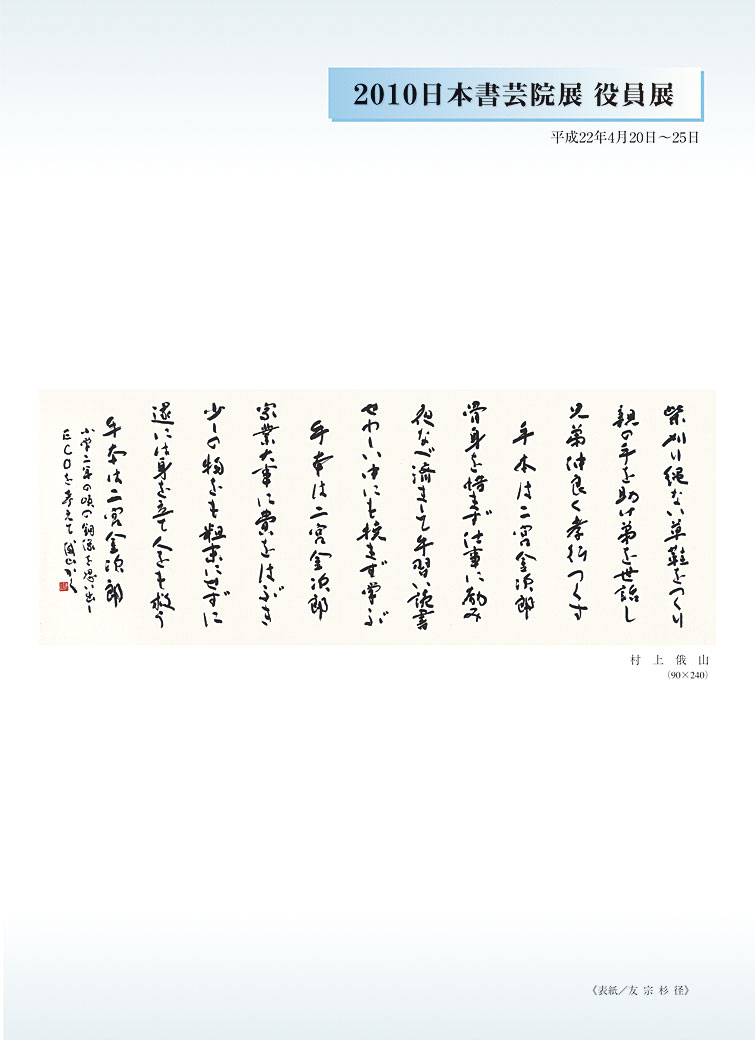 2010日本書芸院展 役員展
平成22年4月20日～25日
柴刈り縄ない草鞋をつくり
親の手を助け弟を世話し
兄弟仲良く孝行つくす
手本は二宮金次郎
骨身を惜まず仕事に励み
夜なべ済まして手習い読書
せわしい中にも撓まず学ぶ
手本は二宮金次郎
家業大事に費をはぶき
少しの物をも粗末にせずに
遂には身を立て人をも救う
手本は二宮金次郎
小学二年の頃の銅像を思い出し
ECOを考えて 俄山かく
村上俄山
（90×240）
《表紙／友宗杉径》